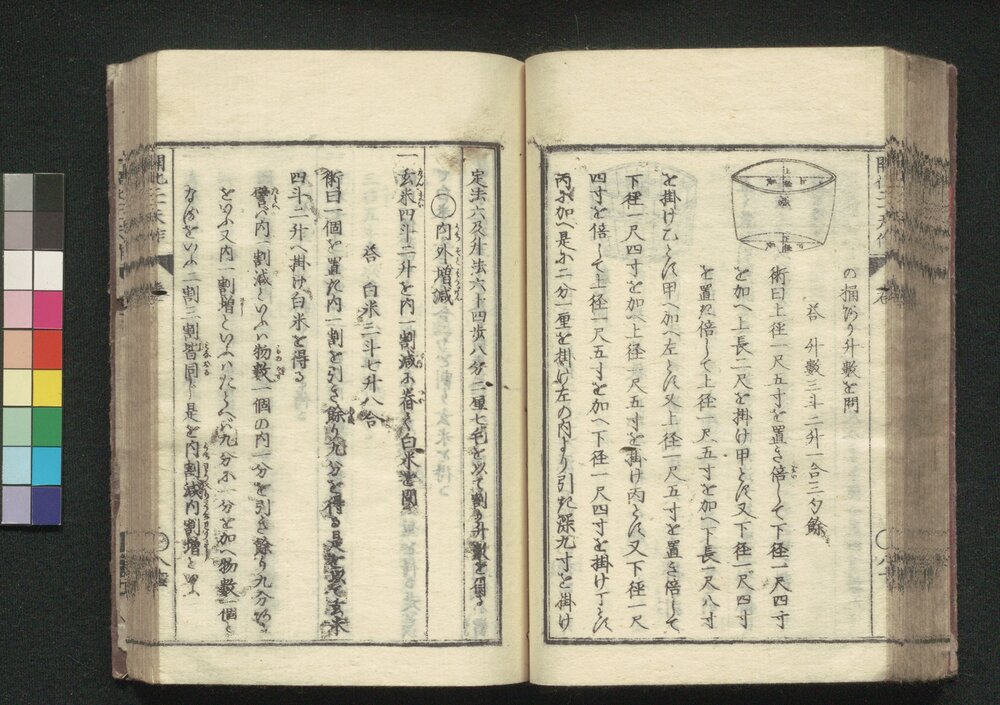 の桶あり升数を問
答 升数三斗二升一合三夕餘
術曰上徑一尺五寸を置き倍して下徑一尺四寸
を加へ上長一尺を掛け甲とし又下徑一尺四寸
を置き倍して上徑一尺五寸を加へ下長一尺八寸
を掛け乙とし甲へ加へ左とし又上徑一尺五寸を置き倍して
下徑一尺四寸を加へ上徑一尺五寸を掛け丙とし又下徑一尺
四寸を倍して上徑一尺五寸を加へ下徑一尺四寸を掛け丁とし
丙に加へ是に二分一厘を掛け左の内より引き深九寸を掛け
定法六及升法六十四歩八分二厘七毛を以て割り升数を得る
○内外増減
一玄米四斗二升を内一割減に舂く白米を問
答 白米三斗七升八合
術曰一個を置き内一割を引き餘り九分を得る是を以て玄米
四斗二升へ掛け白米を得る
譬へ内一割減といふハ物数一個の内一分を引き餘り九分
をいふ又内一割増といふハたとへバ九分に一分を加へ物数一個と
なるをいふ二割三割皆同し是を内割減内割増と